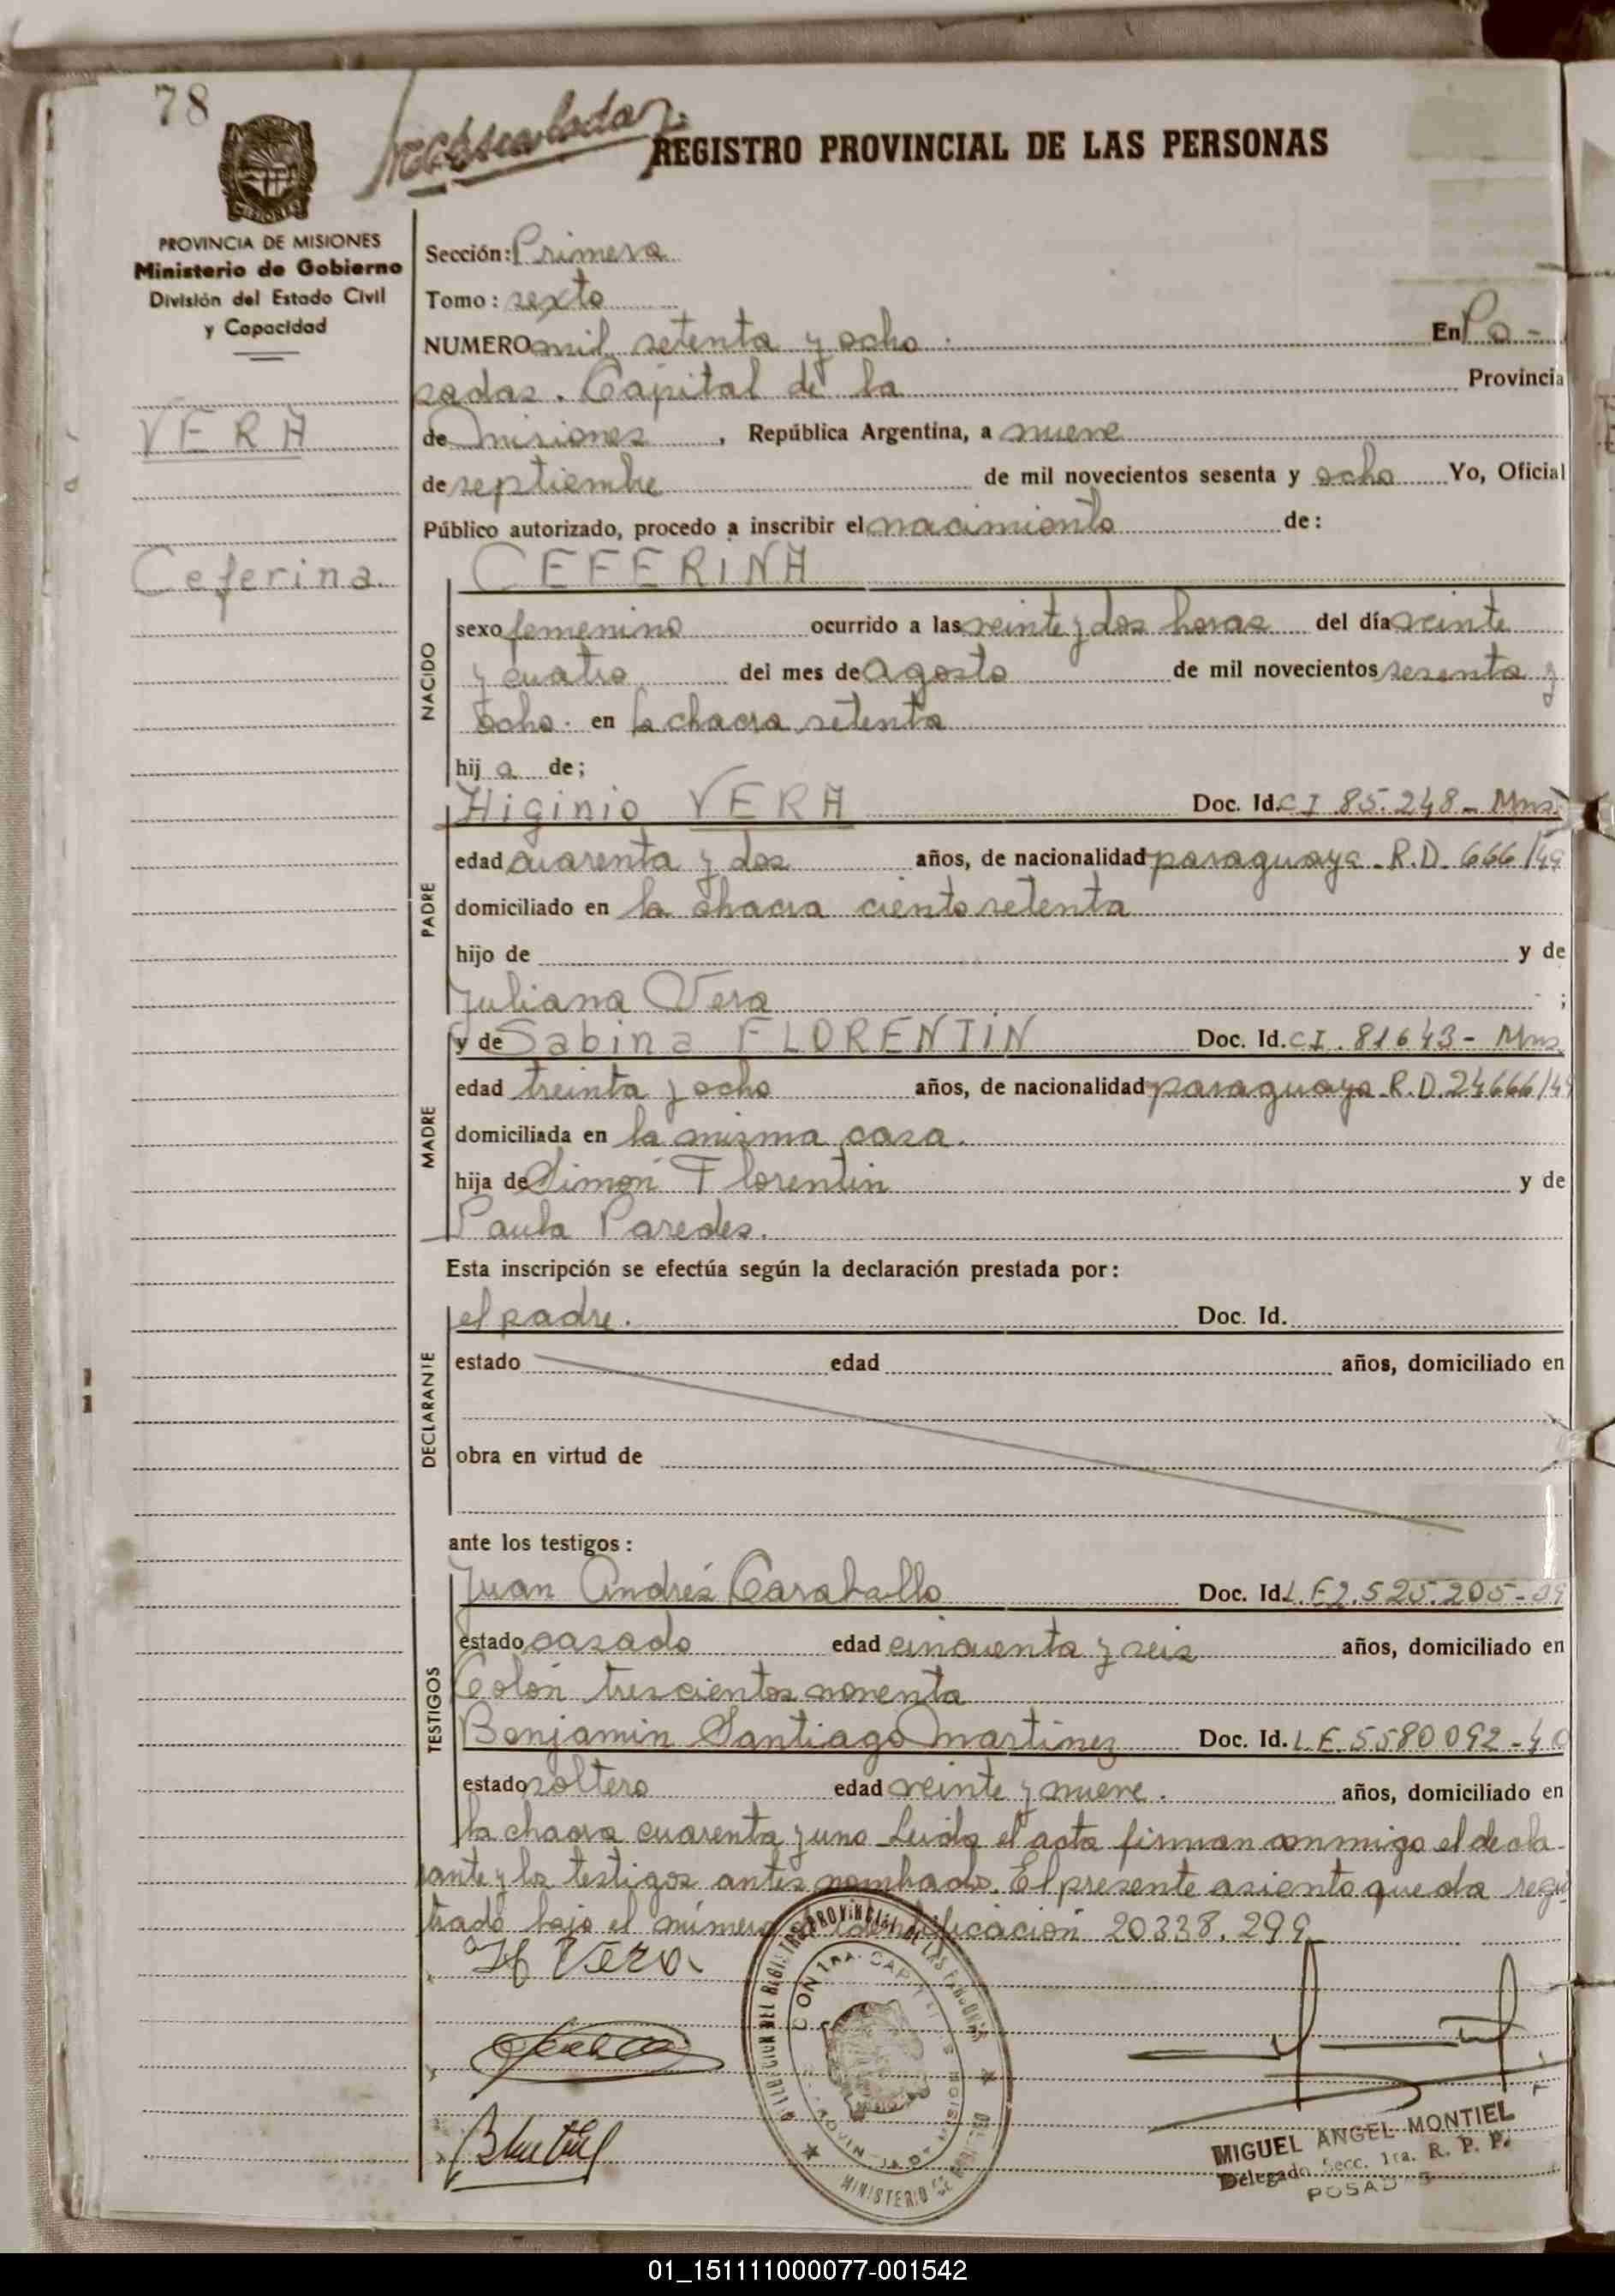 78
REGISTRO PROVINCIAL DE LAS PERSONAS
PROVINCIA DE MISIONES
Ministerio de Gobierno
División del Estado Civil
y Capacidad
VERA
Ceferina.
Sección: Primera
Tomo: sexto
NUMERO mil setenta y ocho. En Po-
sadas. Capital de la Provincia
de Misiones, República Argentina, a nueve
de septiembre de mil novecientos sesenta y ocho Yo, Oficial
Público autorizado, procedo a inscribir el nacimiento de:
NACIDO
CEFERINA
sexo femenino ocurrido a las veinte y dos horas del día veinte
y cuatro del mes de Agosto de mil novecientos sesenta y
ocho. en la chacra setenta
hija de;
PADRE
Higinio VERA Doc. Id. CI 85.248- Mns.
edad cuarenta y dos años, de nacionalidad paraguaya. R.D. 666/49
domiciliado en la chacra ciento setenta
hijo de y de
Juliana Vera ;
MADRE
y de Sabina FLORENTIN Doc. Id. CI. 81643- Mns.
edad treinta y ocho años, de nacionalidad paraguaya R.D. 24666/49
domiciliada en la misma casa.
hija de Simón Florentin y de
Paula Paredes.
Esta inscripción se efectúa según la declaración prestada por:
DECLARANTE
el padre. Doc. Id.
estado edad años, domiciliado en
obra en virtud de
ante los testigos:
TESTIGOS
Juan Andrés Caraballo Doc. Id. L.E 2.525.205-09
estado casado edad cincuenta y seis años, domiciliado en
Colón trescientos noventa
Benjamin Santiago Martinez Doc. Id. L.E. 5580092-40
estado soltero edad veinte y nueve. años, domiciliado en
la chacra cuarenta y uno Leida el acta firman conmigo el decla-
rante y los testigos antes nombrados. El presente asiento queda regis
trado bajo el número de identificación 20338.299
H Vera
MIGUEL ANGEL MONTIEL
Delegado Secc. 1ra. R. P. P.
POSADAS
01_151111000077-001542